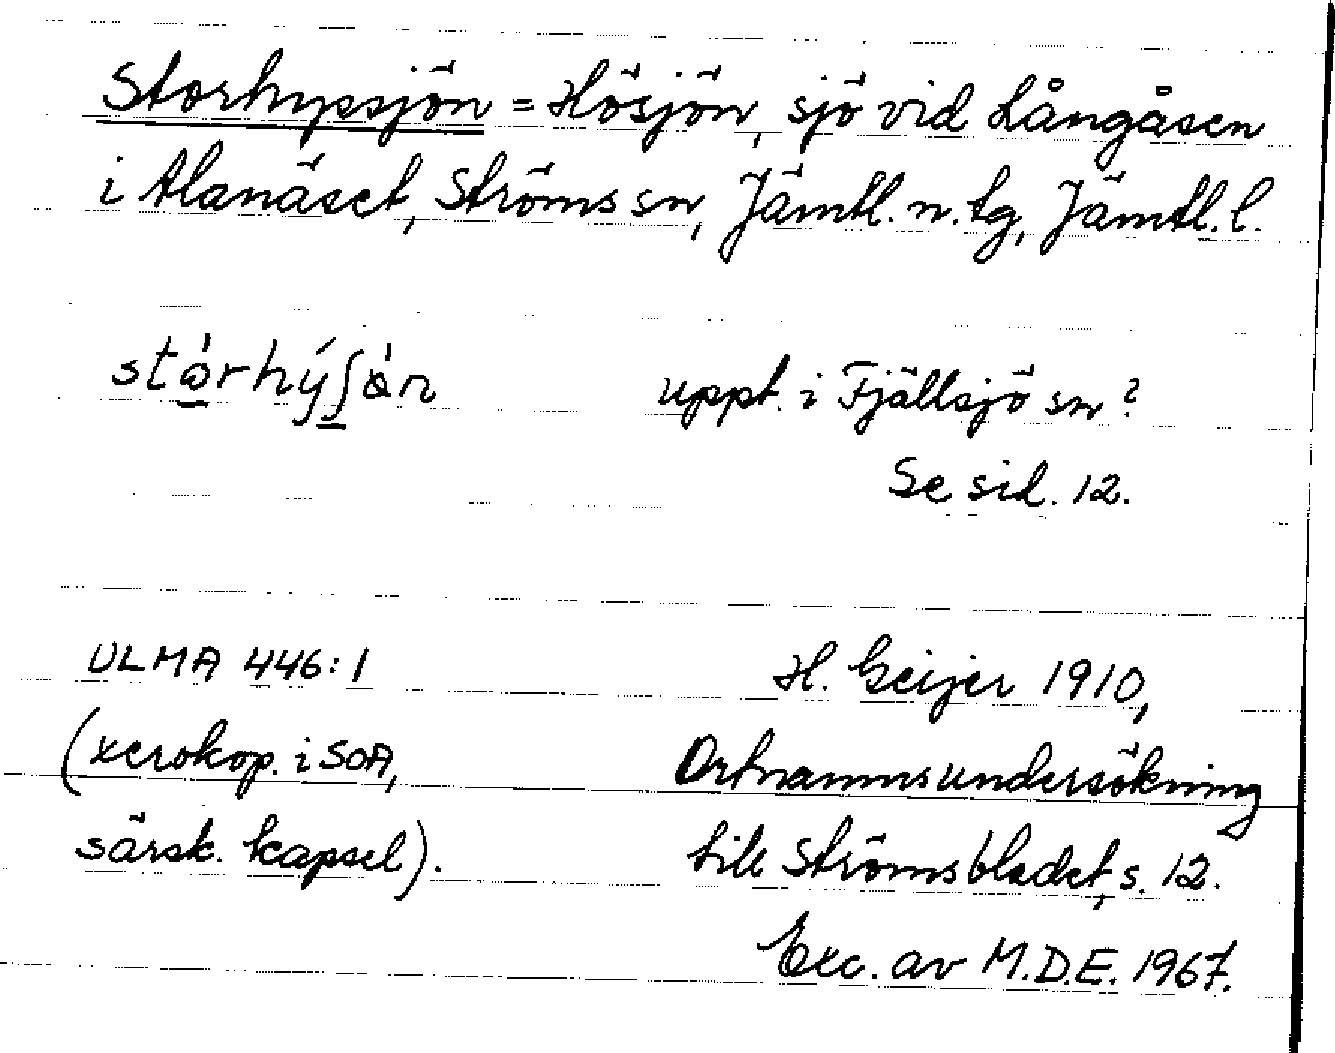 Storhyssjön = Hösjön, sjö vid Långåsen
i Alanäset, Ströms sn, Jämtl. n. tg, Jämtl. l.
uppt. i Fjällsjö sn?
Se sid. 12.
ULMA 446:1
H. Geijer 1910,
(xerokop. i SOA,
Ortnamnsundersökning
särsk. kapsel).
till Strömsbladet, s. 12.
Exc. av M.D.E. 1967.